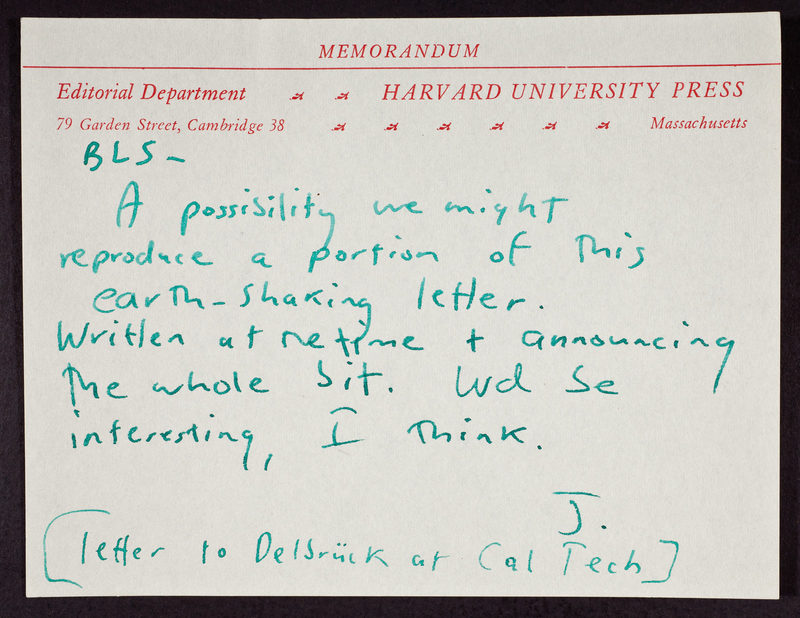 MEMORANDUM
Editorial Department HARVARD UNIVERSITY PRESS
79 Garden Street, Cambridge 38 Massachusetts
BLS –
A possibility we might
reproduce a portion of this
earth-shaking letter.
Written at the time + announcing
the whole bit. Wd be
interesting, I think.
J.
[letter to Delbrück at Cal Tech]